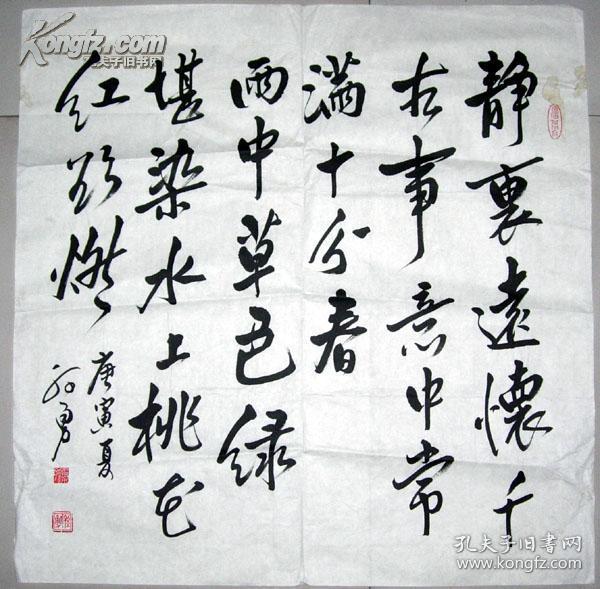 静裏遠懷千
古事意中常
满十分春
雨中草色绿
堪染水上桃花
红欲燃
庚寅夏
勇
Kongfz.com
孔夫子旧书网
孔夫子旧书网
www.kongfz.com